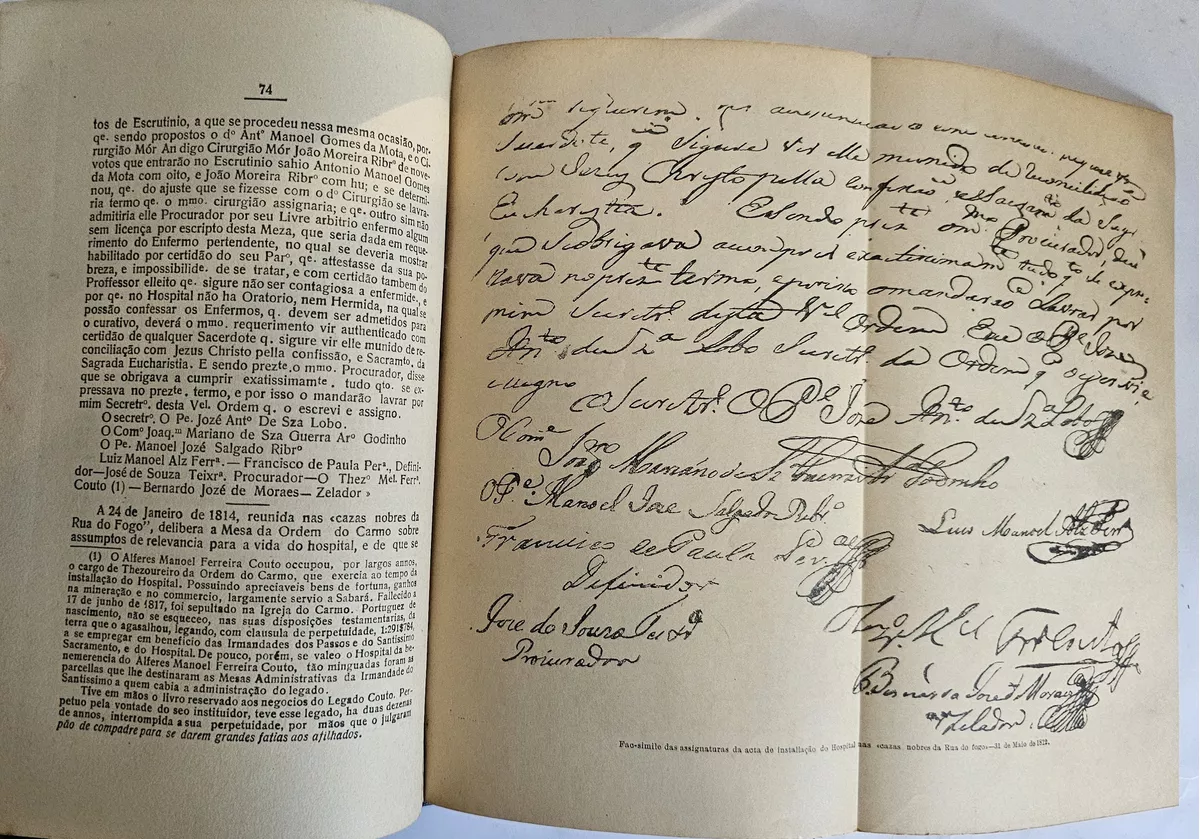 74
tos de Escrutinio, a que se procedeu nessa mesma ocasião, por-
qe. sendo propostos o dº Antº Manoel Gomes da Mota, e o Ci-
rurgião Mór An digo Cirurgião Mór João Moreira Ribrº de nove
votos que entrarão no Escrutinio sahio Antonio Manoel Gomes
da Mota com oito, e João Moreira Ribrº com hu; e se determi-
nou, qe. do ajuste que se fizesse com o dº Cirurgião se lavra-
ria termo qe. o mmo. cirurgião assignaria; e qe. outro sim não
admitiria elle Procurador por seu Livre arbitrio enfermo algum
sem licença por escripto desta Meza, que seria dada em reque-
rimento do Enfermo pertendente, no qual se deveria mostrar
habilitado por certidão do seu Parº, qe. attestasse da sua po-
breza, e impossibilide. de se tratar, e com certidão tambem do
Proffessor elleito qe. sigure não ser contagiosa a enfermide, e
por qe. no Hospital não ha Oratorio, nem Hermida, na qual se
possão confessar os Enfermos, q. devem ser admetidos para
o curativo, deverá o mmo. requerimento vir authenticado com
certidão de qualquer Sacerdote q. sigure vir elle munido de re-
conciliação com Jezus Christo pella confissão, e Sacramto. da
Sagrada Eucharistia. E sendo prezte. o mmo. Procurador, disse
que se obrigava a cumprir exatissimamte. tudo qto. se ex-
pressava no prezte. termo, e por isso o mandarão lavrar por
mim Secretrº. desta Vel. Ordem q. o escrevi e assigno.
O secretrº. O Pe. Jozé Antº De Sza Lobo.
O Comº Joaq.m Mariano de Sza Guerra Arº Godinho
O Pe. Manoel Jozé Salgado Ribrº
Luiz Manoel Alz Ferrª.— Francisco de Paula Perª., Defini-
dor—José de Souza Teixrª. Procurador—O Thezº Mel. Ferrª.
Couto (1) —Bernardo Jozé de Moraes— Zelador »
A 24 de Janeiro de 1814, reunida nas «cazas nobres da
Rua do Fogo", delibera a Mesa da Ordem do Carmo sobre
assumptos de relevancia para a vida do hospital, e de que se
(1) O Alferes Manoel Ferreira Couto occupou, por largos annos,
o cargo de Thezoureiro da Ordem do Carmo, que exercia ao tempo da
installação do Hospital. Possuindo apreciaveis bens de fortuna, ganhos
na mineração e no commercio, largamente servio a Sabará. Fallecido a
17 de junho de 1817, foi sepultado na Igreja do Carmo. Portuguez de
nascimento, não se esqueceo, nas suas disposições testamentarias, da
terra que o agasalhou, legando, com clausula de perpetuidade, 1:291$784,
a se empregar em beneficio das Irmandades dos Passos e do Santissimo
Sacramento, e do Hospital. De pouco, porém, se valeo o Hospital da be-
nemerencia do Alferes Manoel Ferreira Couto, tão minguadas foram as
parcellas que lhe destinaram as Mesas Administrativas da Irmandade do
Santissimo a quem cabia a administração do legado.
Tive em mãos o livro reservado aos negocios do Legado Couto. Per-
petuo pela vontade do seo instituidor, teve esse legado, ha duas dezenas
de annos, interrompida a sua perpetuidade, por mãos que o julgaram
pão de compadre para se darem grandes fatias aos afilhados.
Sacerdote, q sigure vir elle munido de reconciliação
com Jezus Christo pella confissão, e Sacramto da Sagr
Eucharistia. E sendo prezte o mmo Procurador, disse
que se obrigava a cumprir exactissimamte tudo qto se expre-
sava no prezte termo, e por isso o mandarão Lavrar por
mim Secretrº desta Vel Ordem
Antº de Sza Lobo Secretrº da Ordem q o escrevi e
assigno
O Secretrº O Pe Joze Antº de Sza Lobo
O Comº
Joaqm Mariano de Sza Guerra Arº Godinho
O Pe Manoel Joze Salgado Ribrº
Luis Manoel Alz Ferrª
Francisco de Paula Perª
Definidor
Joze de Souza Teixrª
Procurador
Thezº Mel Ferrª Couto
Bernardo Joze de Moraes
Zelador
Fac-simile das assignaturas da acta de installação do Hospital nas «cazas nobres da Rua do fogo»—31 de Maio de 1812.